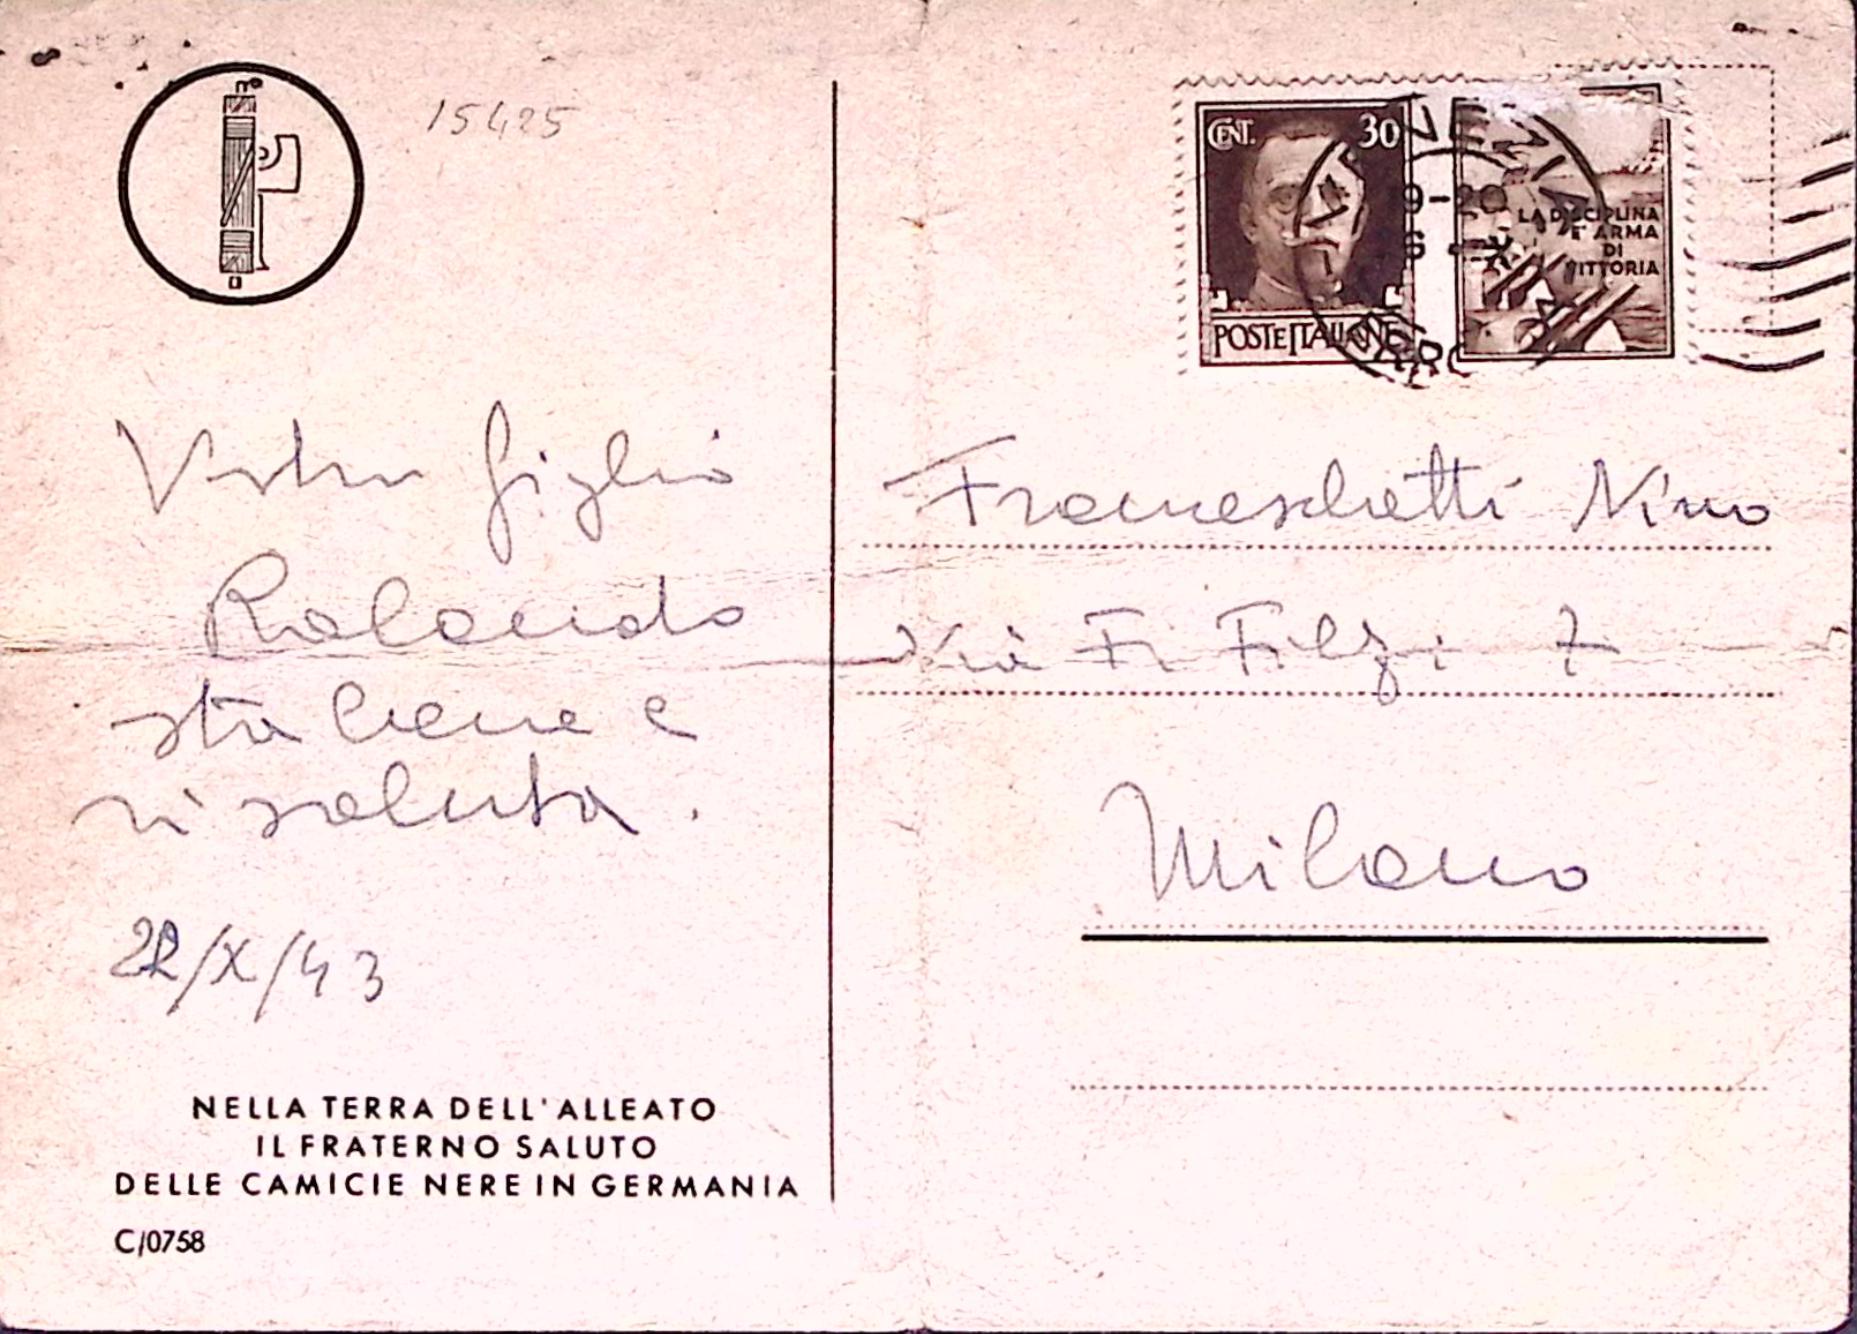 15425
CENT. 30
POSTE ITALIANE
LA DISCIPLINA
E' ARMA
DI
VITTORIA
VENEZIA
9-20
Vostro figlio
Rolando
sta bene e
vi saluta.
22/X/43
Franceschetti Nino
Via F. Filzi 7
Milano
NELLA TERRA DELL'ALLEATO
IL FRATERNO SALUTO
DELLE CAMICIE NERE IN GERMANIA
C/0758